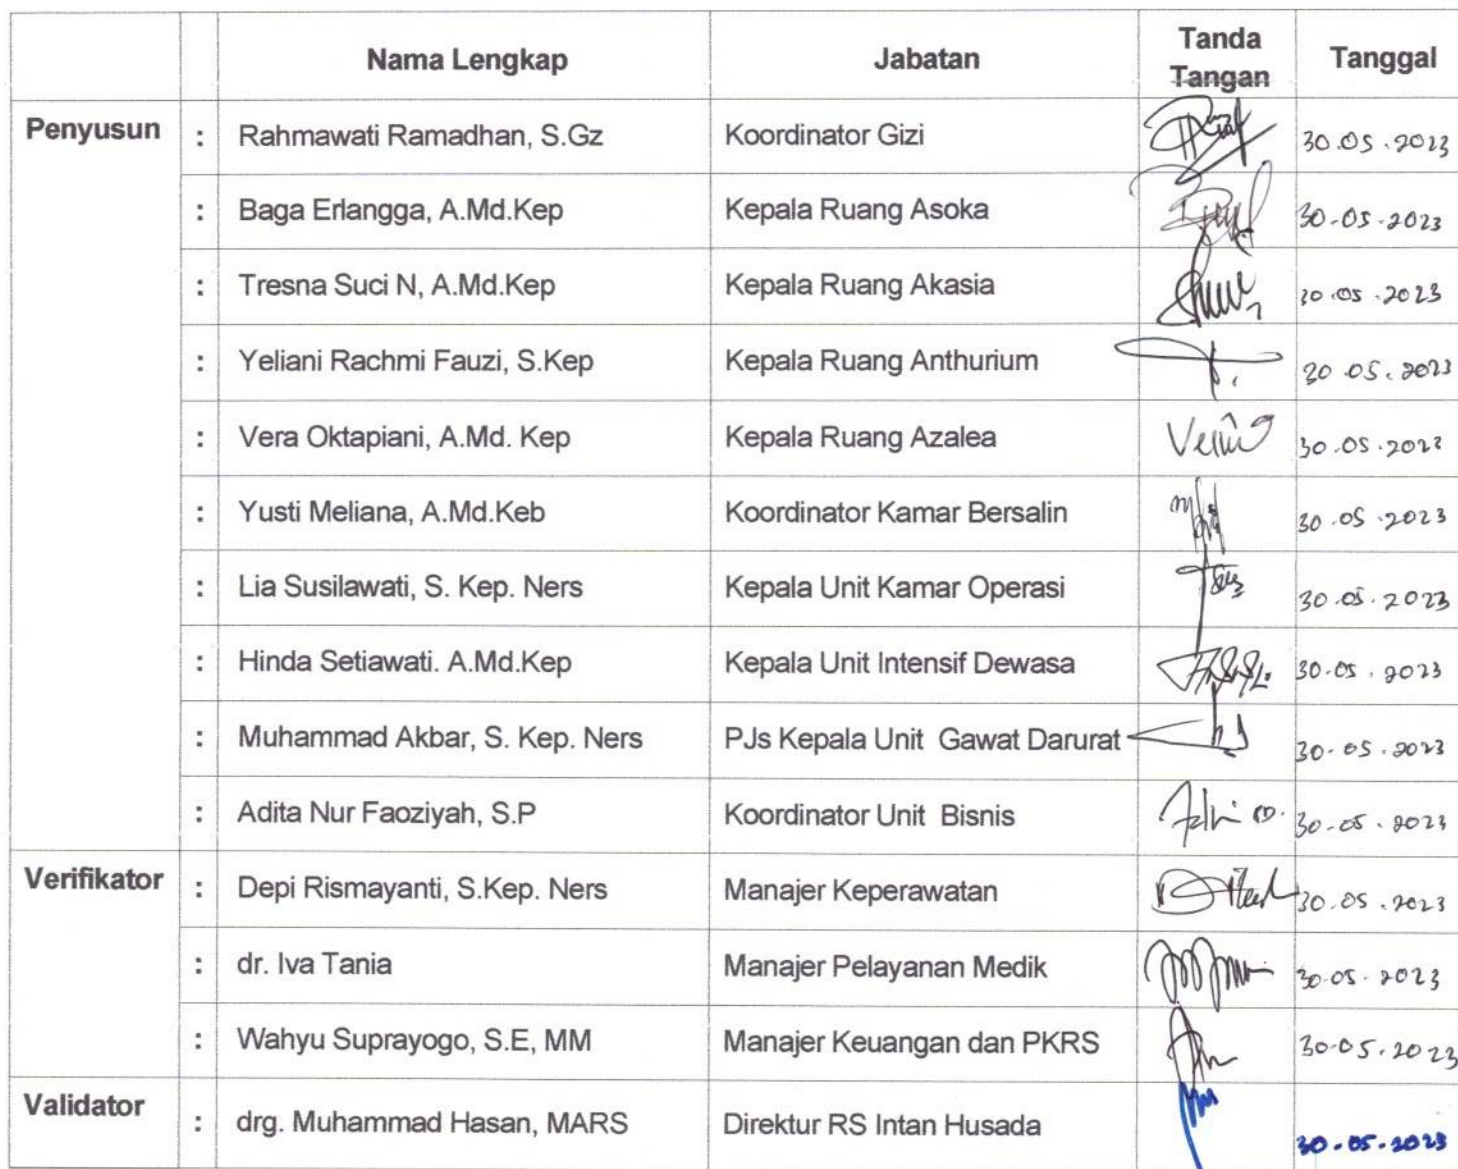 Nama Lengkap Jabatan Tanda Tangan Tanggal
Penyusun : Rahmawati Ramadhan, S.Gz Koordinator Gizi 30.05.2023
: Baga Erlangga, A.Md.Kep Kepala Ruang Asoka 30-05-2023
: Tresna Suci N, A.Md.Kep Kepala Ruang Akasia 30.05.2023
: Yeliani Rachmi Fauzi, S.Kep Kepala Ruang Anthurium 30.05.2023
: Vera Oktapiani, A.Md. Kep Kepala Ruang Azalea 30.05.2023
: Yusti Meliana, A.Md.Keb Koordinator Kamar Bersalin 30.05.2023
: Lia Susilawati, S. Kep. Ners Kepala Unit Kamar Operasi 30.05.2023
: Hinda Setiawati. A.Md.Kep Kepala Unit Intensif Dewasa 30.05.2023
: Muhammad Akbar, S. Kep. Ners PJs Kepala Unit Gawat Darurat 30-05.2023
: Adita Nur Faoziyah, S.P Koordinator Unit Bisnis 30-05.2023
Verifikator : Depi Rismayanti, S.Kep. Ners Manajer Keperawatan 30.05.2023
: dr. Iva Tania Manajer Pelayanan Medik 30.05.2023
: Wahyu Suprayogo, S.E, MM Manajer Keuangan dan PKRS 30-05.2023
Validator : drg. Muhammad Hasan, MARS Direktur RS Intan Husada 30.05.2023